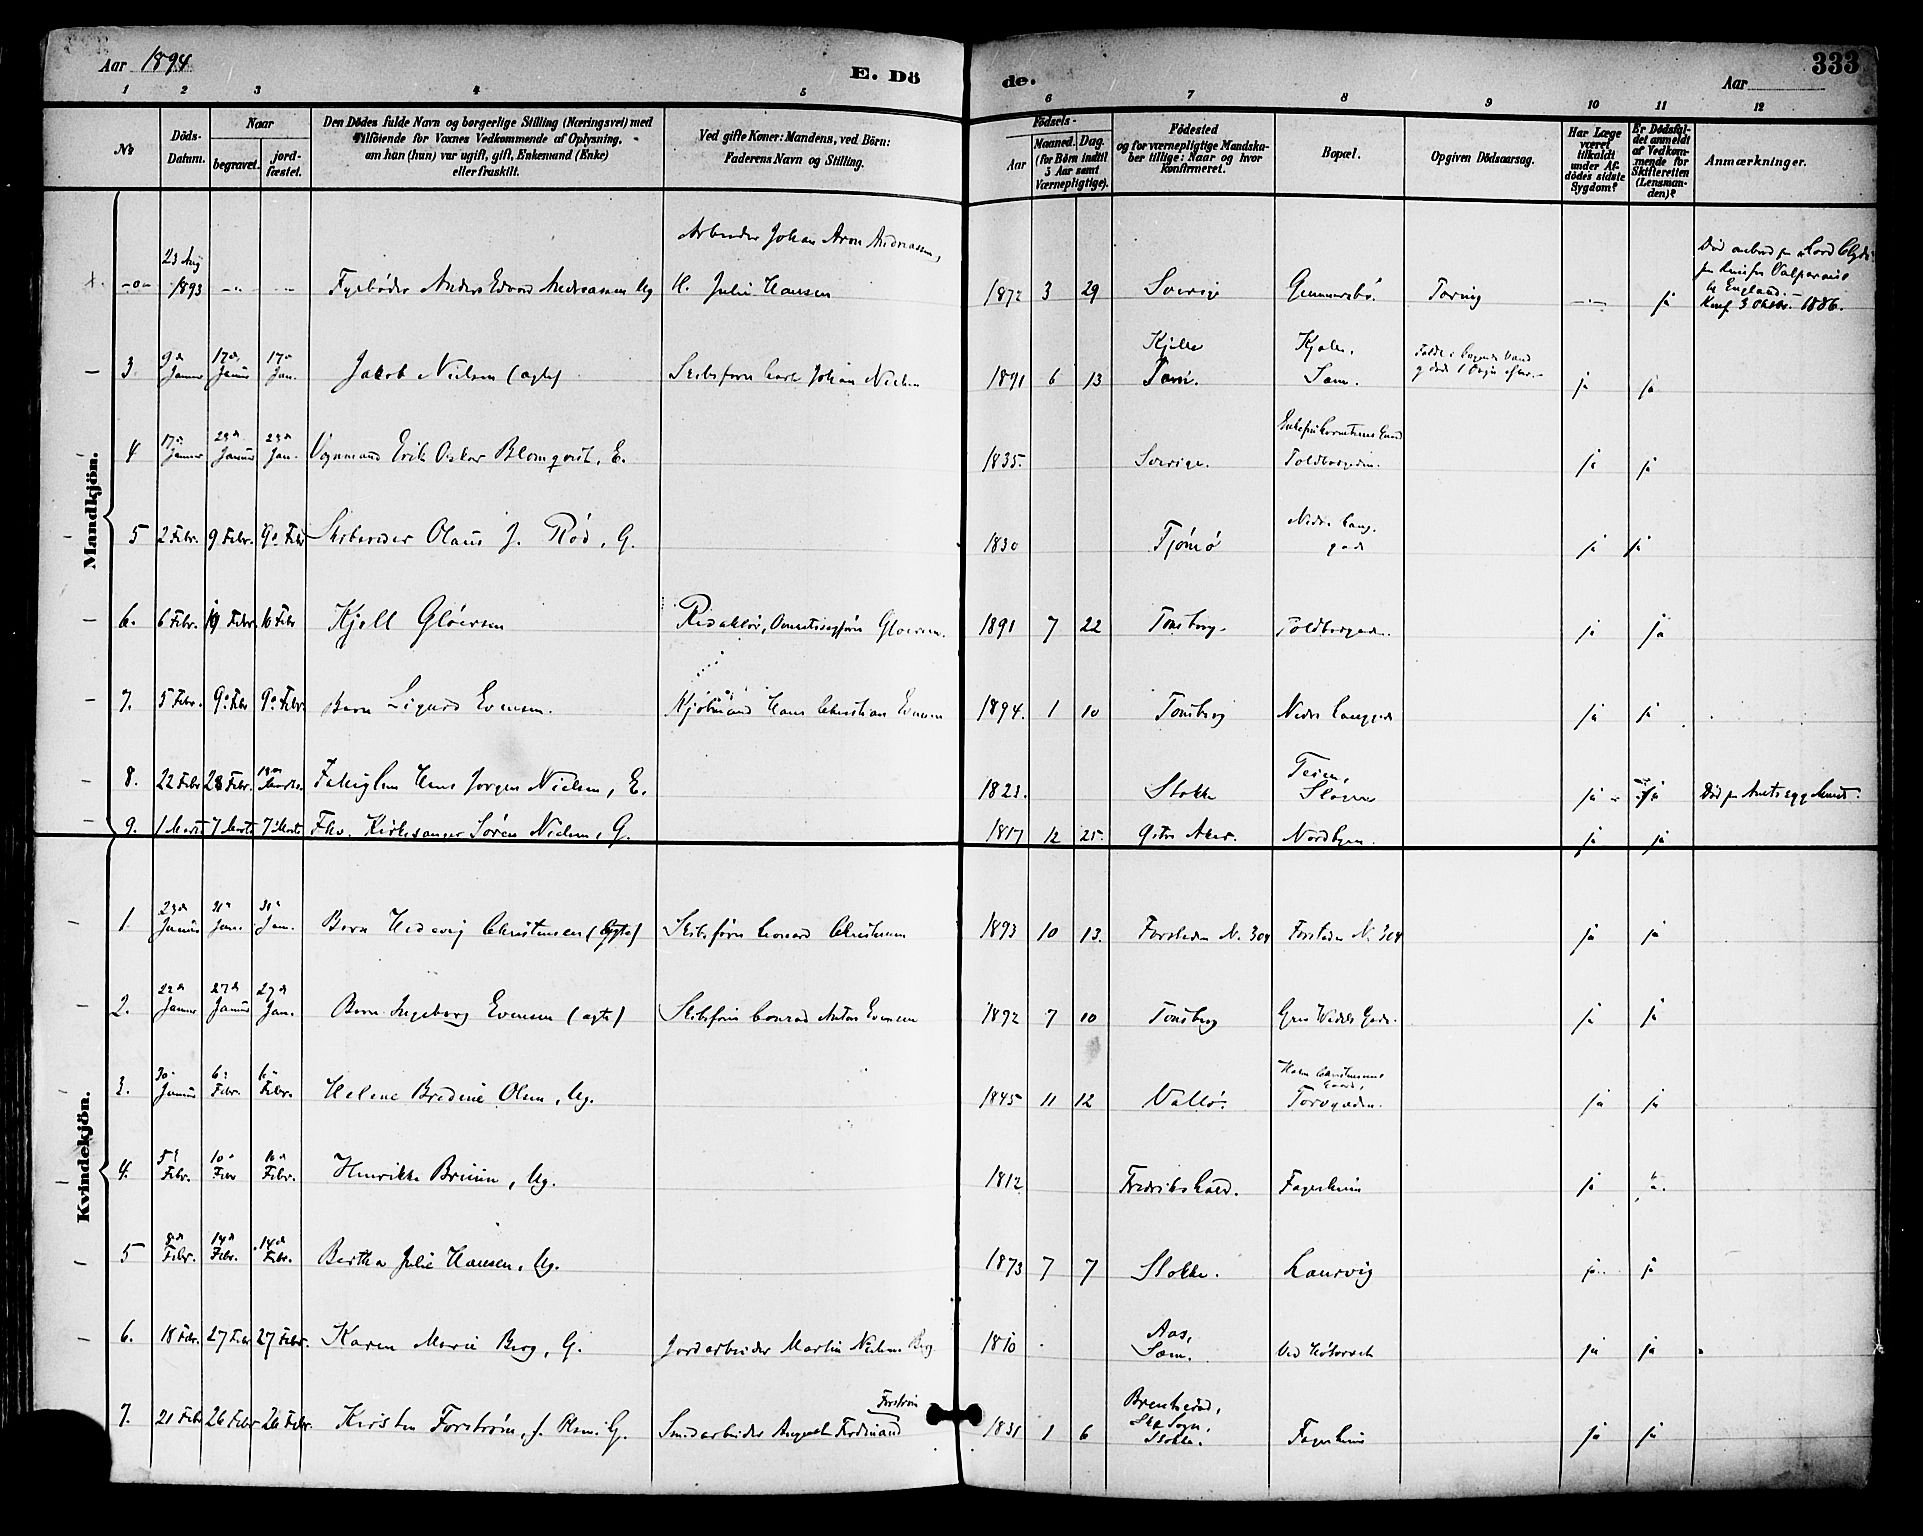 Aar 1894
E. Dö
de.
Aar
333
1 2 3 4 5 6 7 8 9 10 11 12
№
Döds-Datum.
Naar
begravet.
jord-fæstet.
Den Dödes fulde Navn og borgerlige Stilling (Næringsvei) med
Tilföiende for Voxnes Vedkommende af Oplysning,
om han (hun) var ugift, gift, Enkemand (Enke)
eller fraskilt.
Ved gifte Koner: Mandens, ved Börn:
Faderens Navn og Stilling.
Födsels-
Aar
Maaned. Dag.
(for Börn indtil
5 Aar samt
Værnepligtige).
Födested
og for værnepligtige Mandska-
ber tillige: Naar og hvor
konfirmeret.
Bopæl.
Opgiven Dödsaarsag.
Har Læge
været
tilkaldt
under Af-
dödes sidste
Sygdom?
Er Dödsfal-
det anmeldt
af Vedkom-
mende for
Skifteretten
(Lensman-
den)?
Anmærkninger.
Mandkjön.
23 Aug
1893 Fyrböder Anders Edvard Andreassen Ug
Arbeider Johan Aron Andreassen,
H. Julie Hansen
1872 3 29 Sverige Gunnarsbö. ja
Död ombord paa Lord Clyde
Valparaiso
England.
Konf 3 Oktbr. 1886.
3. 9de Januar 17de Januar 17de Jan. Jakob Nielsen (ægte) Skibsförer Carl Johan Nielsen 1891 6 13 Kjelle Sem. Kjelle. Sem. ja ja
4 17de Januar 23de Januar 23de Jan. Vognmand Erik Oskar Blomqvist, E. 1835. Sverige. Toldbodgaden. ja ja
5 2 Febr. 9 Febr. 9de Febr Skibsreder Olaus J. Röd, G. 1830 Tjömö Nedre Lang-
gade ja ja
6. 6 Febr. Febr. 16 Febr Kjell Glöersen Redaktör, Glöersen. 1891 7 22 Tönsberg. Toldbodgaden. ja ja
7. 5 Febr. 9de Febr 9de Febr. Barn Sigurd Evensen. Kjöbmand Hans Christian Evensen 1894. 1 10 Tönsberg Nedre Langgade ja ja
8. 22 Febr 28 Febr. Marts. Hans Jörgen Nielsen, E. 1823. Stokke Teien,
Slagen ja ja Död paa Amtssygehuset.
9. 1 Marts 7 Marts 7de Marts Fhv. Kirkesanger Sören Nielsen, G. 1817 12 25. Aker. Nordbyen. ja ja
Kvindekjön.
1. 23de Januar 31te Jan. 31te Jan. Barn Hedevig Christensen (ægte) Skibsförer Leonard Christensen 1893 10 13. Forstaden N. 304 Forstaden N. 304 ja ja
2. 22de Januar 27de Januar 27de Jan. Barn Ingeborg Evensen (ægte) Skibsförer Conrad Anton Evensen 1892 7 10 Tönsberg Grev Wedels Gade. ja ja
3. 30te Januar 6te Febr. 6te Febr. Helene Bredine Olsen, Ug. 1845 11 12 Vallö. Torvgaden. ja ja
4. 5te Febr. 10de Febr 10de Febr. Henrikke Bruun, Ug. 1812 Fredrikshald. Fagerheim ja
5 8de Febr. 14de Febr. 14de Febr. Bertha Julie Hansen, Ug. 1873 7 7 Stokke. Laurvig ja ja
6. 18 Febr. 27 Febr 27 Febr. Karen Marie Berg, G. Jordarbeider Martin Nielsen Berg 1810 Aas,
Sem. ja ja
7. 21 Febr 26 Febr 26 Febr. Kirsten Forström, f. Olsen. G. Smedarbeider August Ferdinand Forström 1831 1 6 Sogn,
Stokke. Fagerheim ja ja